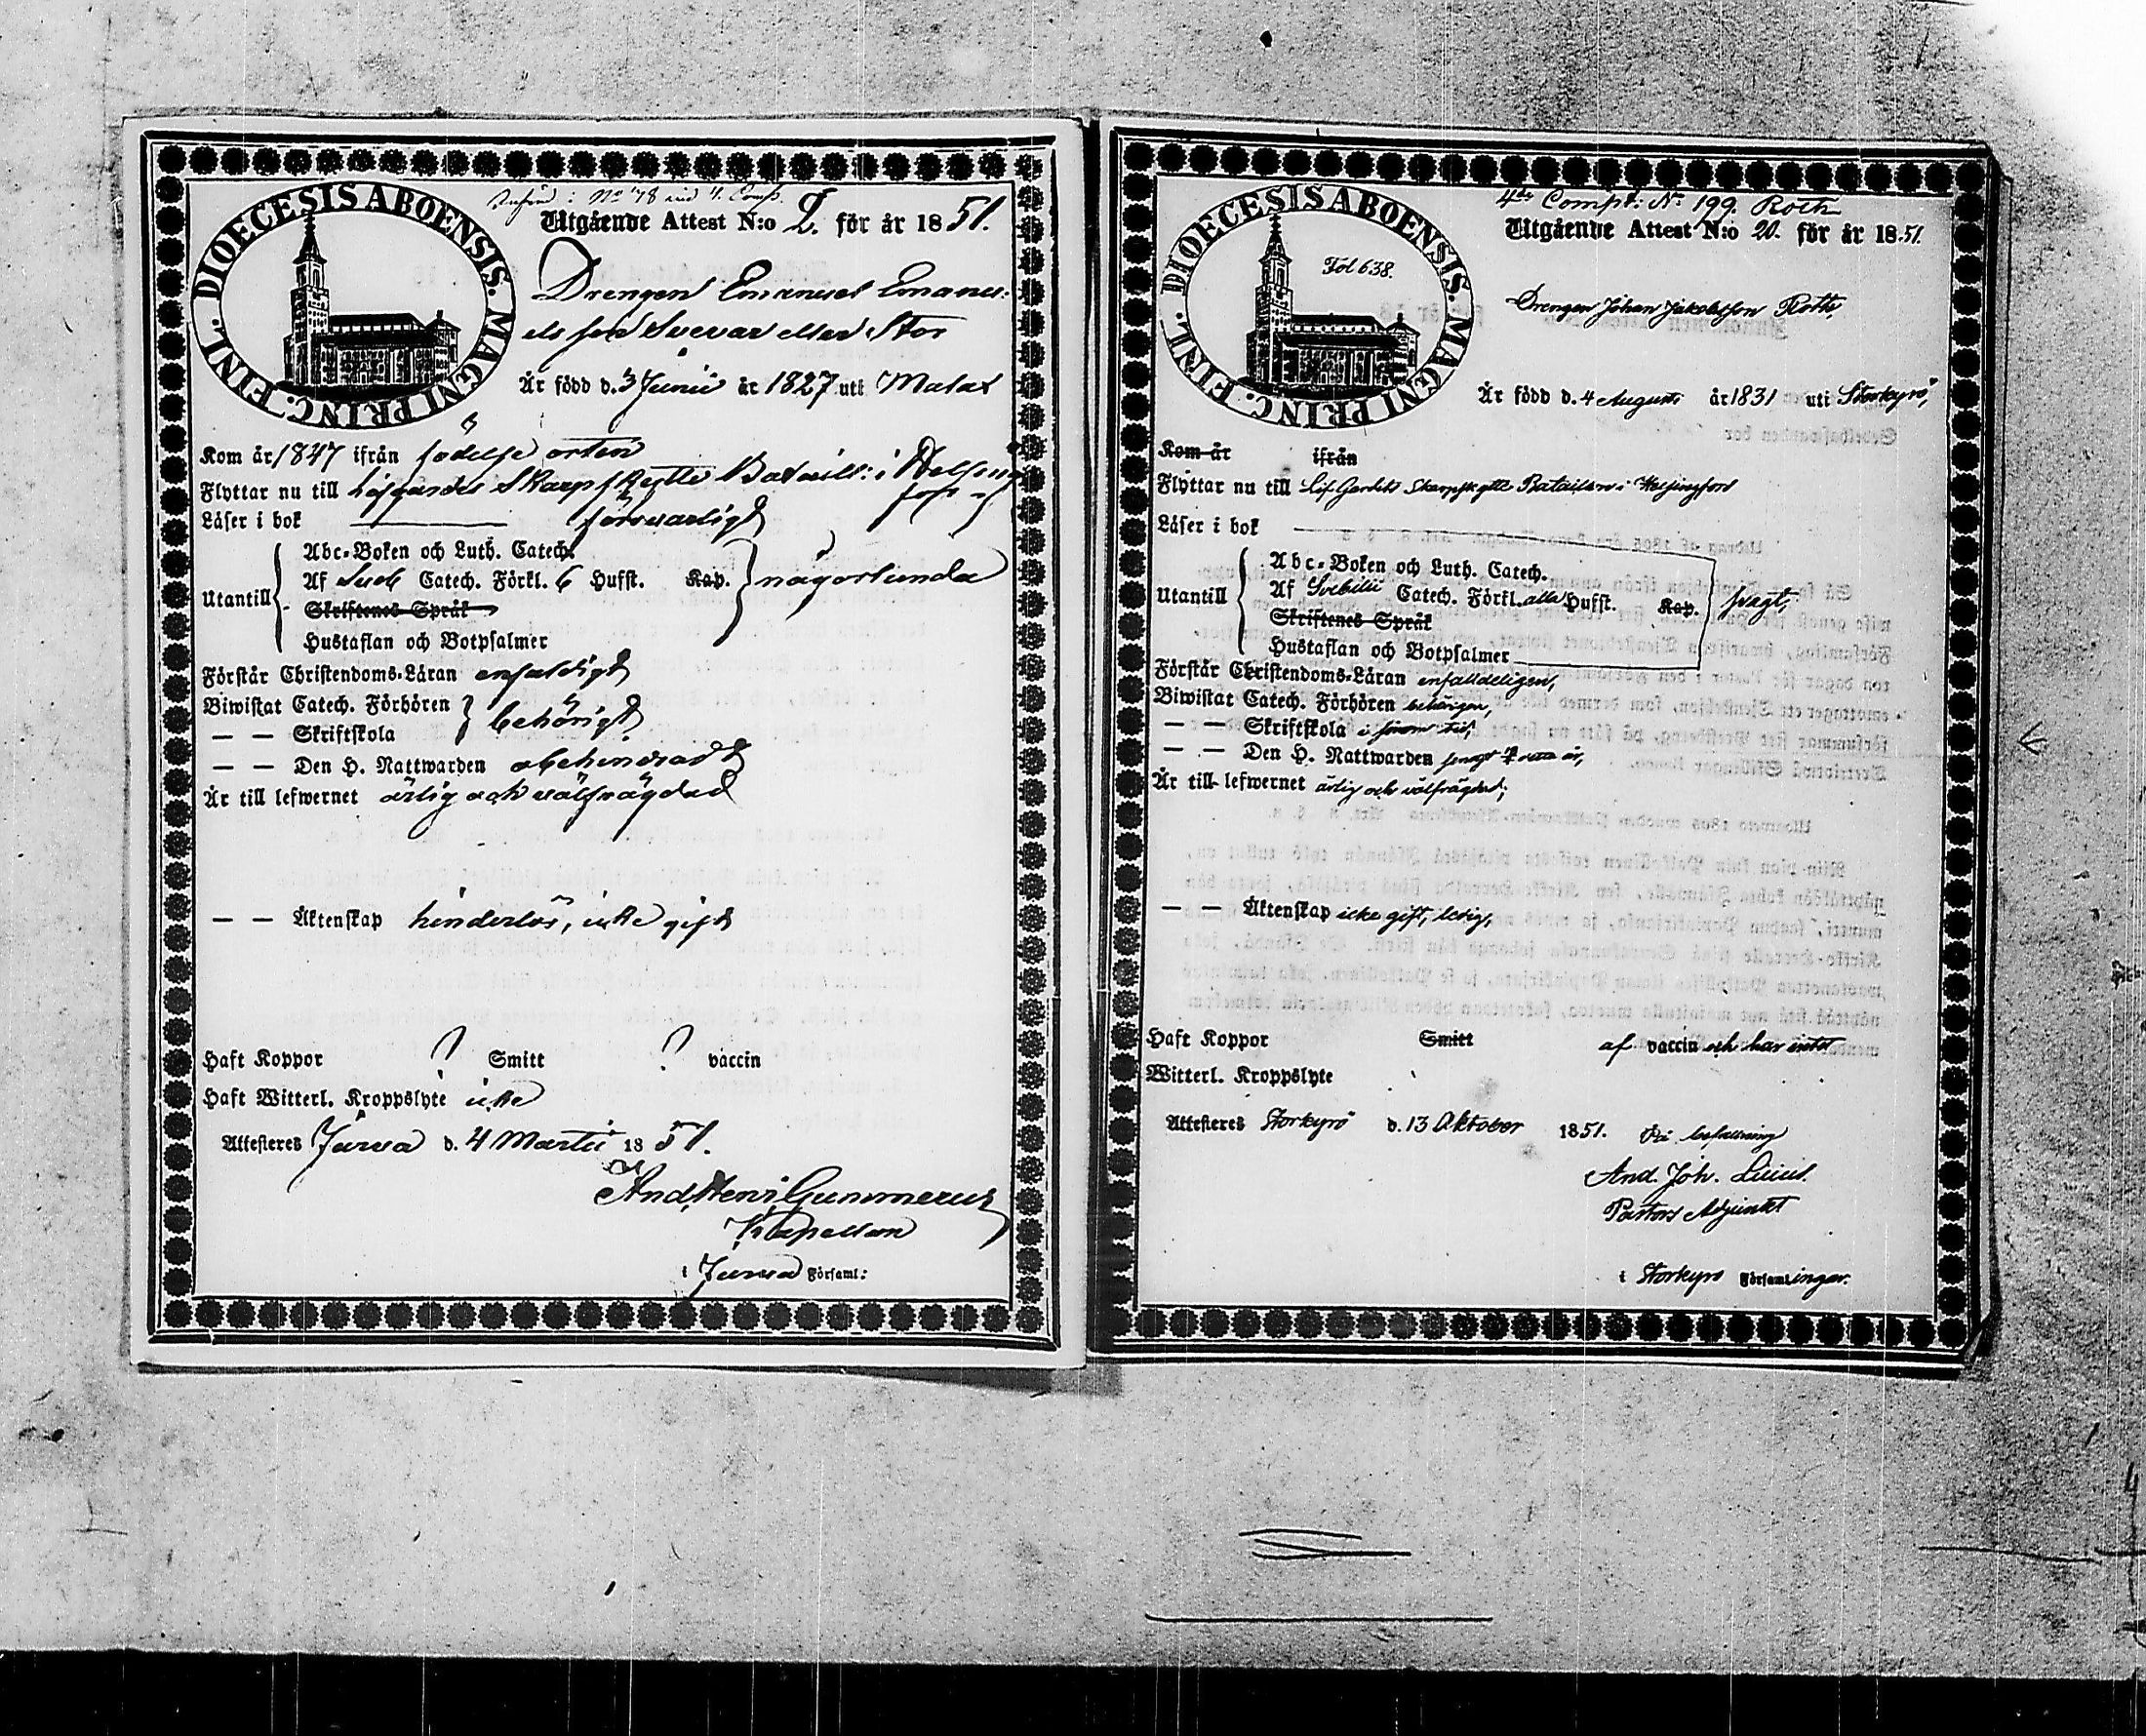 Införd: No 78 vid 4. Comp.
DIOECESIS ABOENSIS. MAGNI PRINC. FINL.
Utgående Attest N:o 2. för år 1851.
Drengen Emanuel Emanu-
elsson Svevar eller Stor
Är född d. 3 Junii år 1827 uti Malax
Kom år 1847 ifrån födelse orten
Flyttar nu till Lifgardes Skarpskytte Bataill: i Helsing
fors
Läser i bok försvarligt
Abc-Boken och Luth. Catech.
Utantill Af Sveb Catech. Förkl. 6 Hufst. Kap. någorlunda
Skriftenes Språk
Hustaflan och Botpsalmer
Förstår Christendoms-Läran enfaldigt
Biwistat Catech. Förhören behörigt
— — Skriftskola
— — Den H. Nattwarden obehindradt
Är till lefwernet ärlig och välfrägdad
— — Äktenskap hinderlös, icke gift
Haft Koppor ? Smitt ? vaccin
Haft Witterl. Kroppslyte icke
Attesteres Jurva d. 4 Martii 1851.
And. Henr. Gummerus
Kapellan
i Jurva Församl:
4de Comp: No 199. Roth
DIOECESIS ABOENSIS. MAGNI PRINC. FINL.
Fol 638.
Utgående Attest N:o 20. för år 1851.
Drengen Johan Jakobsson Roth,
Är född d. 4 Augusti år 1831 uti Storkyrö,
Kom år ifrån
Flyttar nu till Lif Gardets Skarpskytte Bataillon i Helsingfors
Läser i bok
Abc-Boken och Luth. Catech.
Utantill Af Svebilii Catech. Förkl. alla Hufst. Kap. svagt,
Skriftenes Språk
Hustaflan och Botpsalmer
Förstår Christendoms-Läran enfalldeligen,
Biwistat Catech. Förhören behörigen,
— — Skriftskola i sinom tid,
— — Den H. Nattwarden år,
Är till lefwernet ärlig och välfrägdad;
— — Äktenskap icke gift, ledig,
Haft Koppor Smitt af vaccin och har intet
Witterl. Kroppslyte
Attesteres Storkyrö d. 13 Oktober 1851. På befallning
And. Joh.
Pastors Adjunkt
i Storkyro Församlingar.